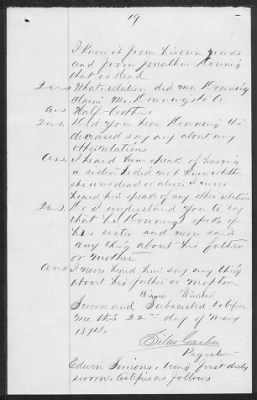 19
I know it from his own words
and from Jonathan Downing
that is dead
Ques What relation did Mr. Downing
claim Mr. Downing to be
Ans Half brother
Ques Did you hear Downing the
deceased say any about any
other relations
Ans I heard him speak of having
a sister I did not know whether
she was dead or alive I never
heard him speak of any other relation
Ques Do I understand you to say
that he Downing spoke of
his sister and never said
any thing about his father
or mother
Ans I never heard him say any thing
about his father or mother
Sworn and Subscribed to before
me this 22nd day of May
Silas
Register
Edwin Simons, being first duly
sworn, testifies as follows